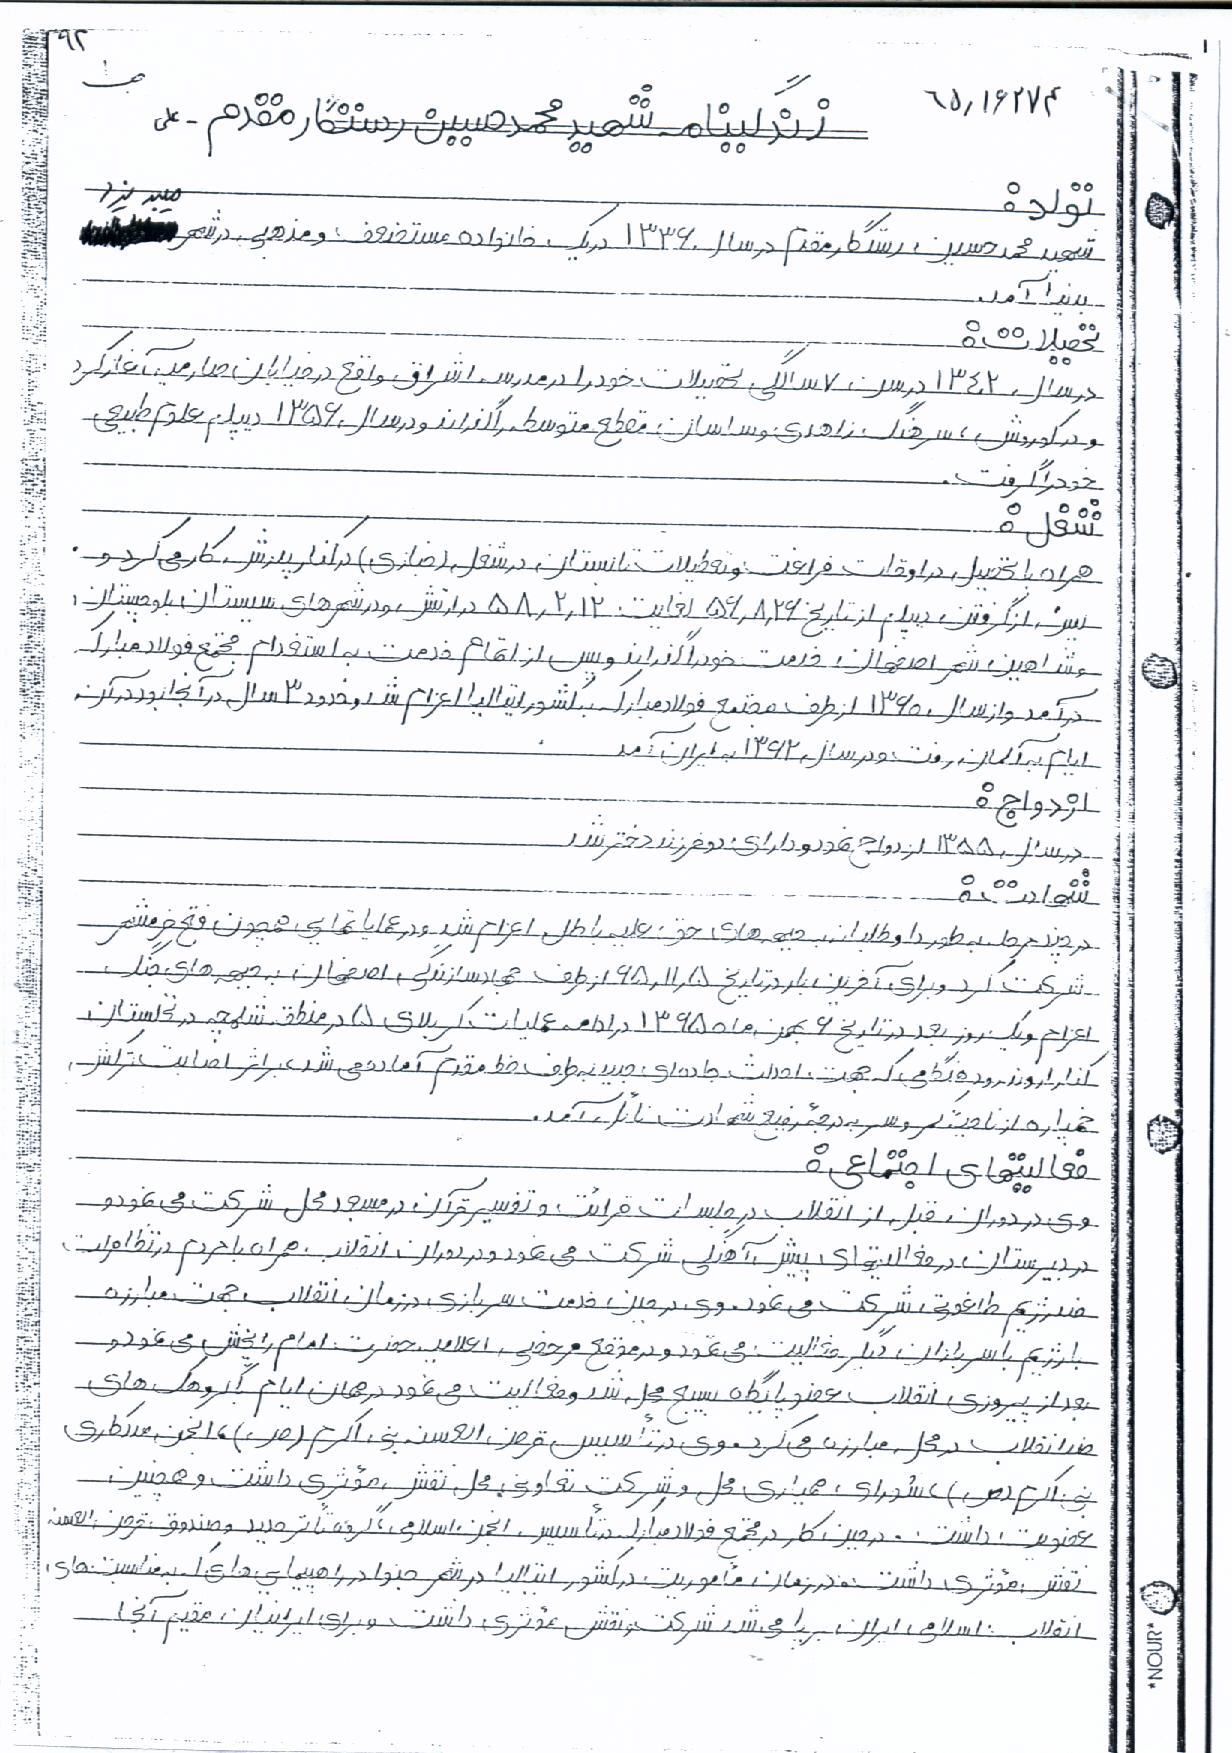 ۹۲
۶۵٫۱۶۲۷۴
زندگینامه شهید محمدحسین رستگار مقدم - علی
تولد:
میبد یزد
شهید محمدحسین رستگار مقدم در سال ۱۳۳۶ در یک خانواده مستضعف و مذهبی در شهر
بدنیا آمد.
تحصیلات:
در سال ۱۳۴۲ در سن ۷ سالگی تحصیلات خود را در مدرسه اشراق واقع در خیابان صارمیه آغاز کرد
و در کوروش، سرهنگ زاهدی و ساسان مقطع متوسطه را گذراند و در سال ۱۳۵۶ دیپلم علوم طبیعی
خود را گرفت.
شغل:
همراه با تحصیل در اوقات فراغت و تعطیلات تابستان در شغل (خبازی) در کنار پدرش کار می کرد و
پس از گرفتن دیپلم از تاریخ ۵۶٫۸٫۲۶ لغایت ۵۸٫۲٫۱۲ در ارتش و در شهرهای سیستان بلوچستان،
و شاهین شهر اصفهان خدمت خود را گذراند و پس از اتمام خدمت به استخدام مجتمع فولاد مبارکه
در آمد و از سال ۱۳۶۰ از طرف مجتمع فولاد مبارکه به کشور ایتالیا اعزام شد و حدود ۳ سال در آنجا بود در آن
ایام به آلمان رفت و در سال ۱۳۶۲ به ایران آمد
ازدواج:
در سال ۱۳۵۵ ازدواج نمود و دارای دو فرزند دختر شد
شهادت:
در چند مرحله به طور داوطلبانه به جبهه های حق علیه باطل اعزام شد و در عملیاتهایی همچون فتح خرمشهر
شرکت کرد و برای آخرین بار در تاریخ ۶۵٫۱۱٫۵ از طرف جهاد سازندگی اصفهان به جبهه های جنگ
اعزام و یک روز بعد در تاریخ ۶ بهمن ماه ۱۳۶۵ در ادامه عملیات کربلای ۵ در منطقه شلمچه در نخلستان
کنار اروند رود هنگامی که جهت احداث جاده ای جدید به طرف خط مقدم آماده می شد، بر اثر اصابت ترکش
خمپاره از ناحیه کمر و سر به درجه رفیع شهادت نائل آمد.
فعالیتهای اجتماعی:
وی در دوران قبل از انقلاب در جلسات قرائت و تفسیر قرآن در مسجد محل شرکت می نمود و
در دبیرستان در فعالیتهای پیش آهنگی شرکت می نمود و در دوران انقلاب همراه با مردم در تظاهرات
ضد رژیم طاغوتی شرکت می نمود. وی در حین خدمت سربازی در زمان انقلاب جهت مبارزه
با رژیم با سربازان دیگر فعالیت می نمود و در موقع مرخصی اعلامیه حضرت امام را پخش می نمود و
بعد از پیروزی انقلاب عضو پایگاه بسیج محل شد و فعالیت می نمود در همان ایام با گروهک های
ضد انقلاب در محل مبارزه می کرد. وی در تأسیس قرض الحسنه نبی اکرم (ص)، انجمن مددکاری
نبی اکرم (ص)، شورای همیاری محل و شرکت تعاونی محل نقش مؤثری داشت و همچنین
عضویت داشت. در حین کار در مجتمع فولاد مبارکه در تأسیس انجمن اسلامی، گروه تأتر جدید و صندوق قرض الحسنه
نقش مؤثری داشت و در زمان مأموریت در کشور ایتالیا در شهر جنوا در راهپیمایی های که به مناسبت های
انقلاب اسلامی ایران برپا می شد شرکت و نقش مؤثری داشت و برای ایرانیان مقیم آنجا
*NOUR*